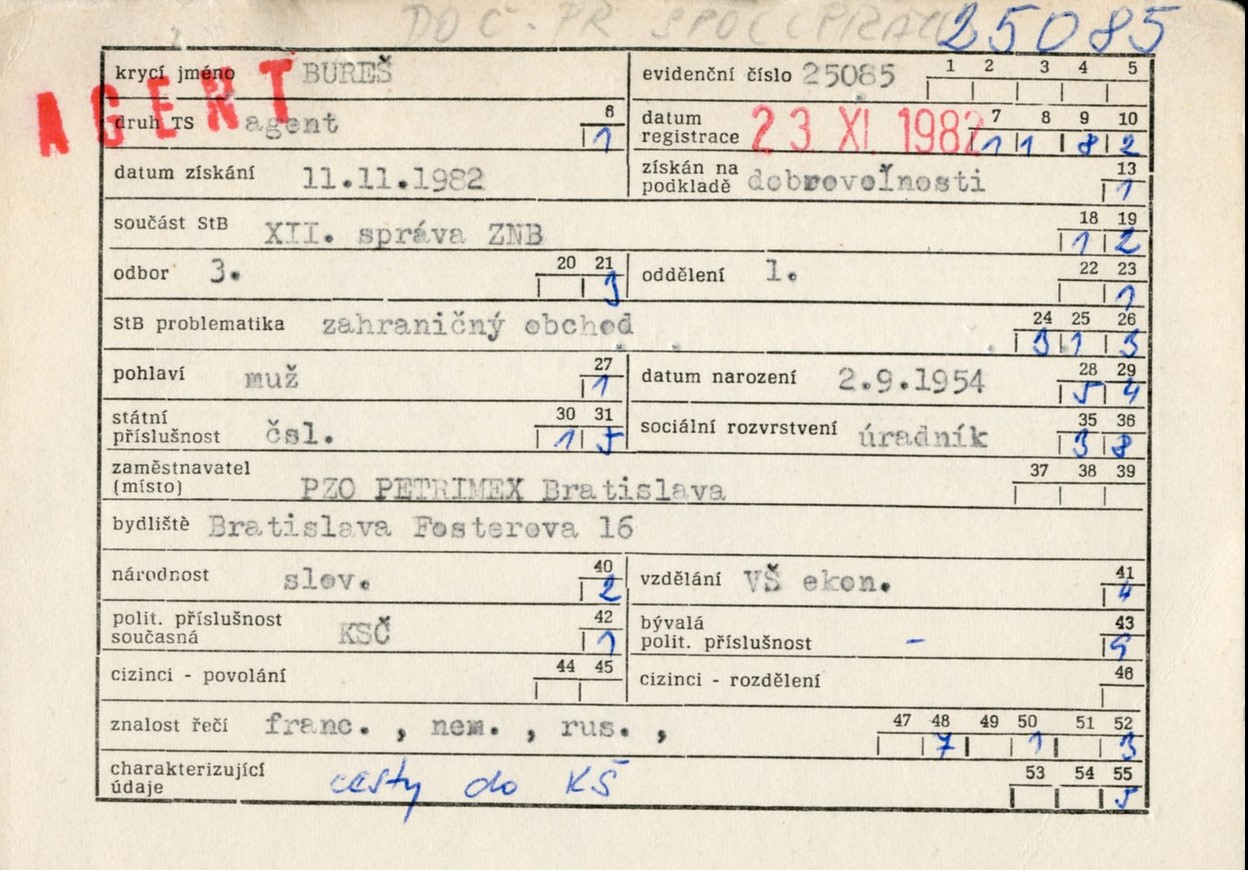 DOČ. PR SPOL(PRAC 25085
AGENT
krycí jméno BUREŠ evidenční číslo 25085 1 2 3 4 5
druh TS agent 6 1 datum registrace 23 XI. 1982 7 8 9 10 1 1 8 2
datum získání 11.11.1982 získán na podkladě dobrovoľnosti 13 1
součást StB XII. správa ZNB 18 19 1 2
odbor 3. 20 21 3 oddělení 1. 22 23 1
StB problematika zahraničný obchod 24 25 26 3 1 3
pohlaví muž 27 1 datum narození 2.9.1954 28 29 5 4
státní příslušnost čsl. 30 31 1 5 sociální rozvrstvení úradník 35 36 3 8
zaměstnavatel (místo) PZO PETRIMEX Bratislava 37 38 39
bydliště Bratislava Fosterova 16
národnost slov. 40 2 vzdělání VŠ ekon. 41 4
polit. příslušnost současná KSČ 42 1 bývalá polit. příslušnost - 43 9
cizinci - povolání 44 45 cizinci - rozdělení 46
znalost řečí franc. , nem. , rus. , 47 48 49 50 51 52 7 1 3
charakterizující údaje cesty do KŠ 53 54 55 5